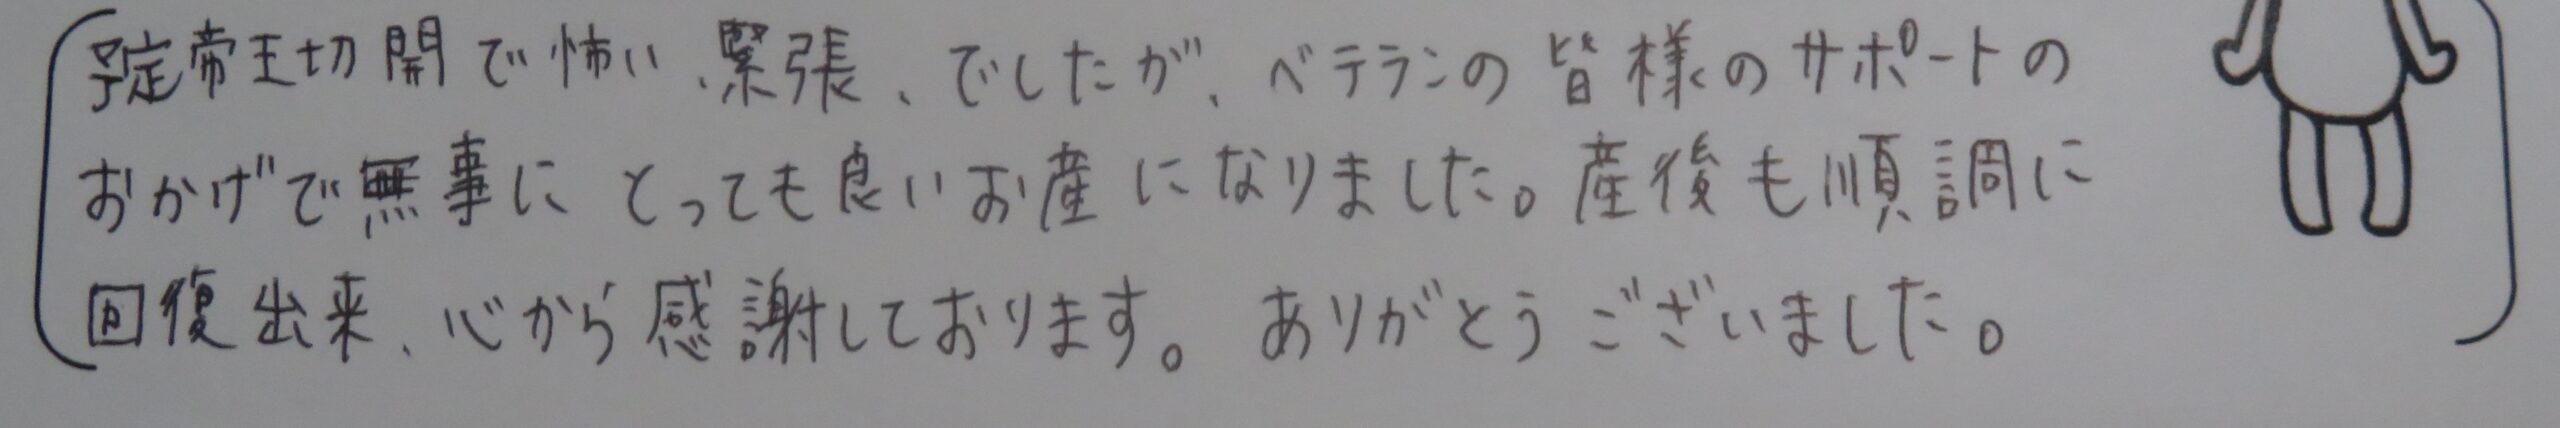 予定帝王切開で怖い、緊張、でしたが、ベテランの皆様のサポートの
おかげで無事に とっても良いお産になりました。産後も順調に
回復出来、心から感謝しております。ありがとうございました。